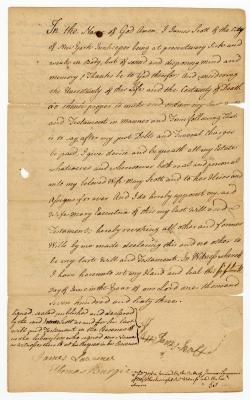 In the Name of God Amen. I James Scott of the City
of New York Innkeeper being at present very Sick and
weak in Body, but of sound and disposing mind and
memory Thanks be to God therefor And considering
the Uncertainty of this Life and the Certainty of Death
do think proper to make and ordain my last Will
and Testament in Manner and Form following That
is to say after my just Debts and Funeral Charges
be paid I give devise and bequeath all my Estate
whatsoever and wheresoever both real and personal
unto my beloved Wife Mary Scott and to her Heirs and
Assigns for ever And I do hereby appoint my said
Wife Mary Executrix of this my last Will and
Testament; hereby revoking all other and former
Wills by me made declaring this and no other to
be my last Will and Testament. In Witness whereof
I have hereunto set my Hand and Seal the
day of June in the Year of our Lord one thousand
seven hundred and sixty three.
Signed, sealed, published and declared
by the said Scott as and for his last
will and Testament in the Presence of
James Scott
James